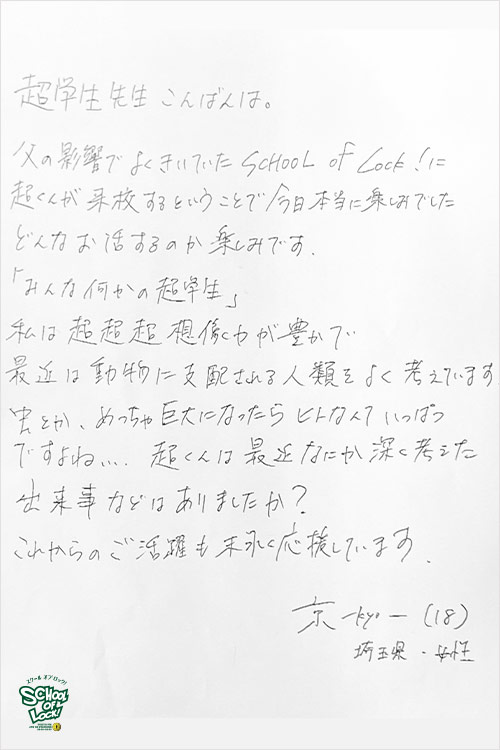 超学生先生 こんばんは。
父の影響で よくきいていた SCHOOL of Lock! に
超くんが 来校するということで 今日本当に楽しみでした
どんなお話するのか 楽しみです.
「みんな何かの超学生」
私は 超 超 超 想像力が豊かで
最近は動物に支配される人類をよく考えています
虫とか、めっちゃ巨大になったら ヒトなんて いっぱつ
ですよね... 超くんは 最近なにか 深く考えた
出来事などはありましたか?
これからの ご活躍も 末永く応援しています.
京 -kyo- (18)
埼玉県・女性
スクール オブ ロック!
SCHOOL
OF
LOCK!